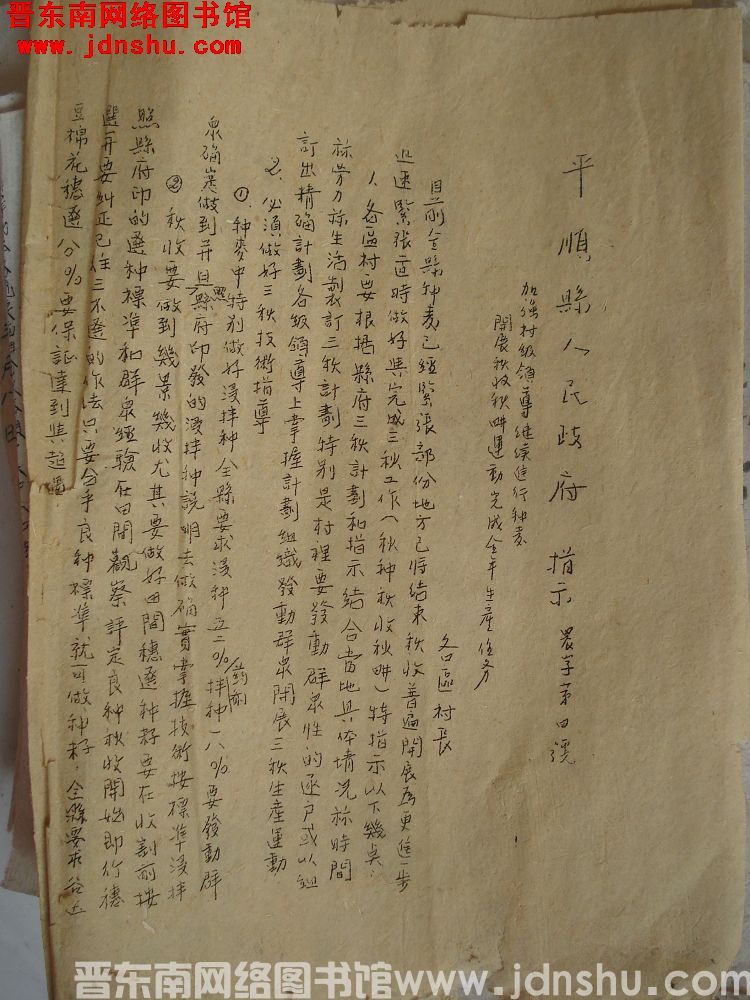 晋东南网络图书馆
www.jdnshu.com
平順縣人民政府 指示 農字第四號
加強村級領導継续進行种麦
開展秋收秋畊運動完成全年生產任务
各區村長
目前全縣种麦已經緊張部份地方已將結束秋收普遍開展為更進一步
迅速緊張適時做好與完成三秋工作（秋种秋收秋畊）特指示以下幾点：
1、各區村要根據縣府三秋計劃和指示結合當地具体情况按時間
按劳力按生活製訂三秋計劃特别是村裡要發動群衆性的逐户或以組
訂出精確計劃各級領導上掌握計劃組織發動群衆開展三秋生產運動
2、必須做好三秋技術指導
①、种麥中特别做好浸拌种全縣要求浸种五二%葯剤拌种一八%要發動群
衆確實做到并且照縣府印發的浸拌种說明去做確實掌握技術按標準浸拌
② 秋收要做到幾景幾收尤其要做好田間穗選种籽要在收割前按
照縣府印的選种標準和群衆經驗在田間觀察評定良种秋收開始即行穗
選并要糾正已往三不選的作法只要合乎良种標準就可做种籽．全縣要求谷山
豆棉花穗選八〇%要保証達到與超過．
晋东南网络图书馆www.jdnshu.com